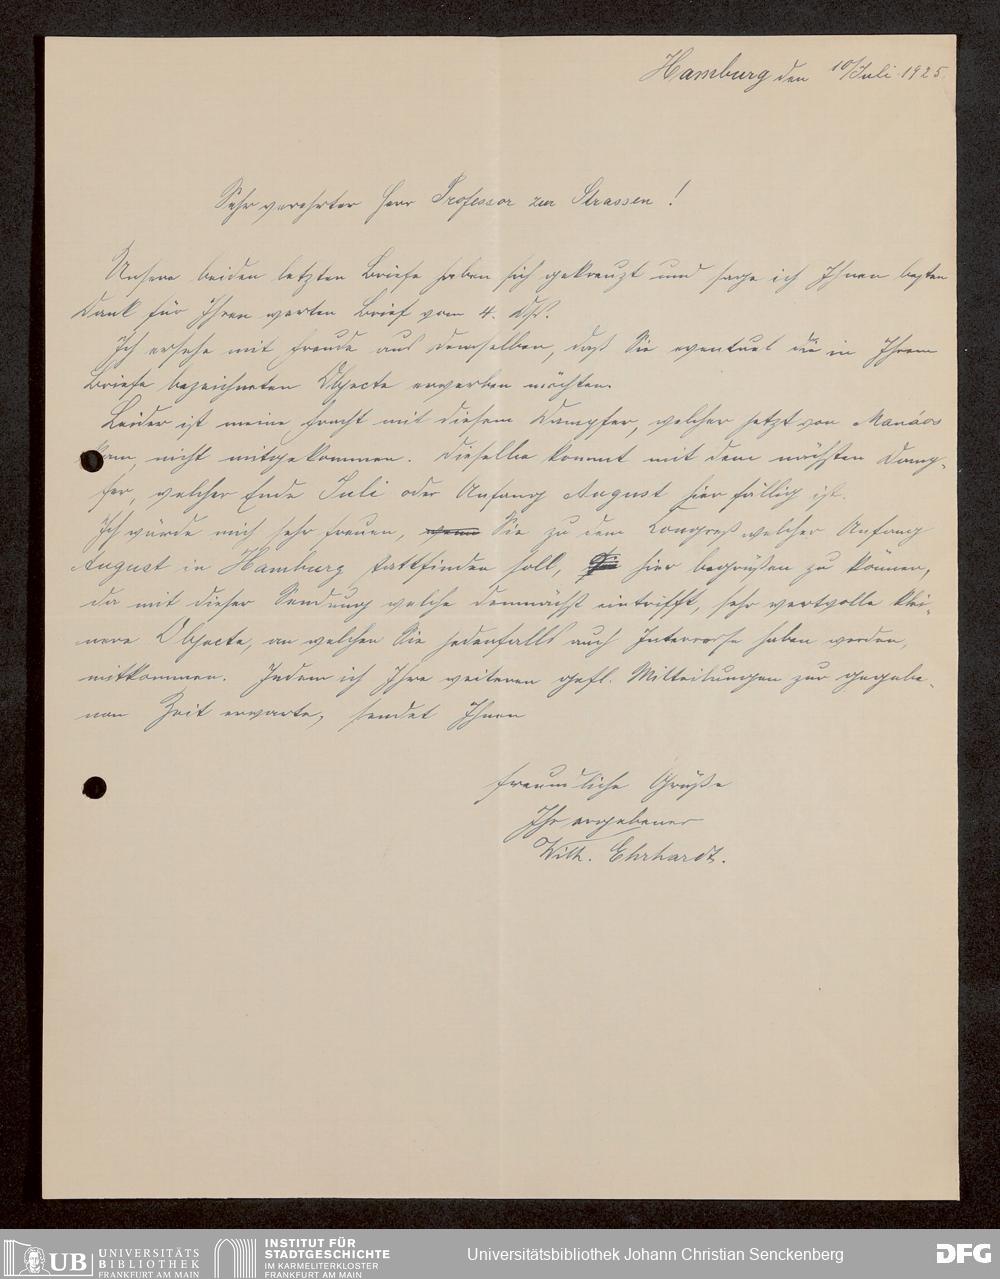 Hamburg den 10/Juli 1925.
Sehr verehrter Herr Professor zur Strassen!
Unsere beiden letzten Briefe haben sich gekreuzt und sage ich Ihnen besten
Dank für Ihren werten Brief vom 4. ds.
Ich ersehe mit Freude aus demselben, daß Sie eventuel die in Ihrem
Briefe bezeichneten Objecte erwerben möchten.
Leider ist meine Fracht mit diesem Dampfer, welcher jetzt von Manáos
kam, nicht mitgekommen. Dieselbe kommt mit dem nächsten Damp-
fer, welcher Ende Juli oder Anfang August hier fällig ist.
Ich würde mich sehr freuen, wenn Sie zu dem Congreß welcher Anfang
August in Hamburg stattfinden soll, hier begrüßen zu können,
da mit dieser Sendung welche demnächst eintrifft, sehr wertvolle klei-
nere Objecte, an welchen Sie jedenfalls auch Interresse haben werden,
mitkommen. Indem ich Ihre weiteren gefl. Mitteilungen zur gegebe-
nen Zeit erwarte, sendet Ihnen
freundliche Grüße
Ihr ergebener
Wilh. Ehrhardt.
UB UNIVERSITÄTS
BIBLIOTHEK
FRANKFURT AM MAIN
INSTITUT FÜR
STADTGESCHICHTE
IM KARMELITERKLOSTER
FRANKFURT AM MAIN
Universitätsbibliothek Johann Christian Senckenberg
DFG